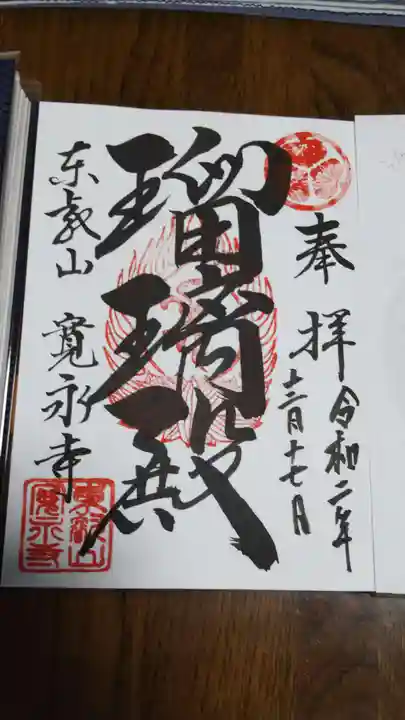 奉拝
令和二年
十二月十七日
瑠璃殿
東叡山 寛永寺
東叡山
寛永寺